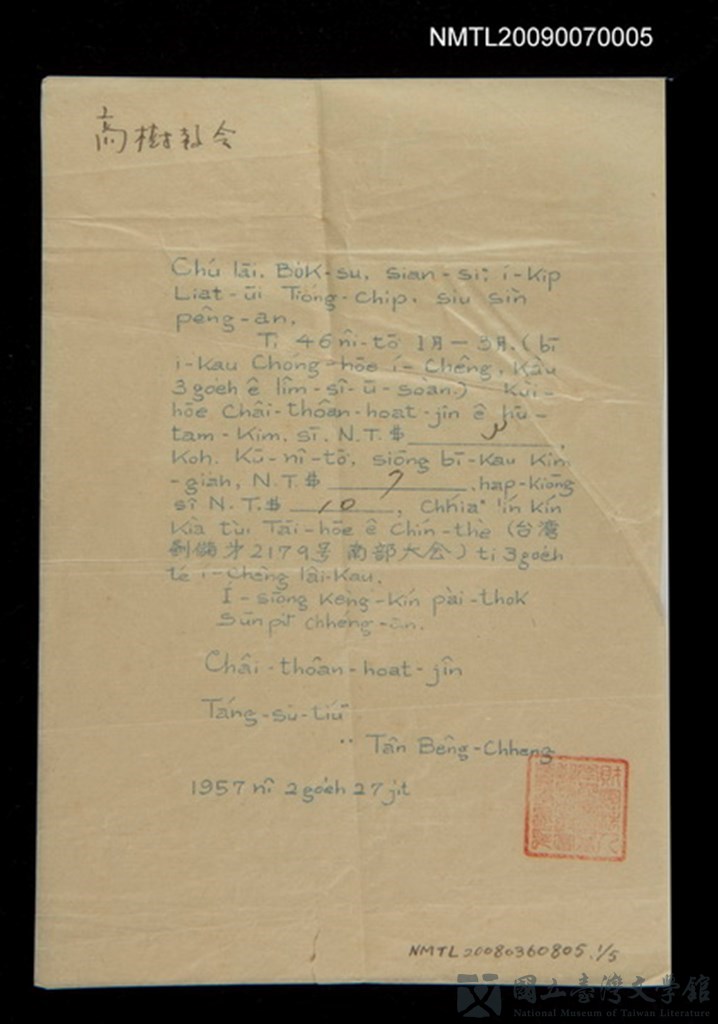 NMTL20090070005
高樹教会
Chú lāi. Bo̍k-su, sian-siⁿ í-ki̍p
Liat-ūi Tióng-chip. siu sìⁿ
pêng-an.
Tī 46 nî-tō͘ 1月—3月.(bī
i-kau Chóng-hōe í-Chêng, Kàu
3 goe̍h ê lîm-sî-ū-soàn.) Kùi-
hōe Châi-thôan-hoat-jîn ê hū-
tam-Kim. sī. N.T.$ ,
Koh. Kū-nî-tō͘. siōng bī-Kau Kim
-gia̍h, N.T.$ 7 .ha̍p-kiōng
sī N.T.$ 10 , Chhiáⁿ lín Kín
Kià tùi Tāi-hōe ê Chín-thè (台湾
劃儲才2179号 南部大会) tī 3 goe̍h
té í-Chêng lâi-Kau.
Í-siōng Kèng-Kín pài-thok
Sūn pit chhéng-an.
Châi-thôan-hoat-jîn
Táng-sū-tiúⁿ
Tân Bêng-Chheng
1957 nî 2 goe̍h 27 ji̍t
NMTL20080360805.1/5
國立臺灣文學館
National Museum of Taiwan Literature